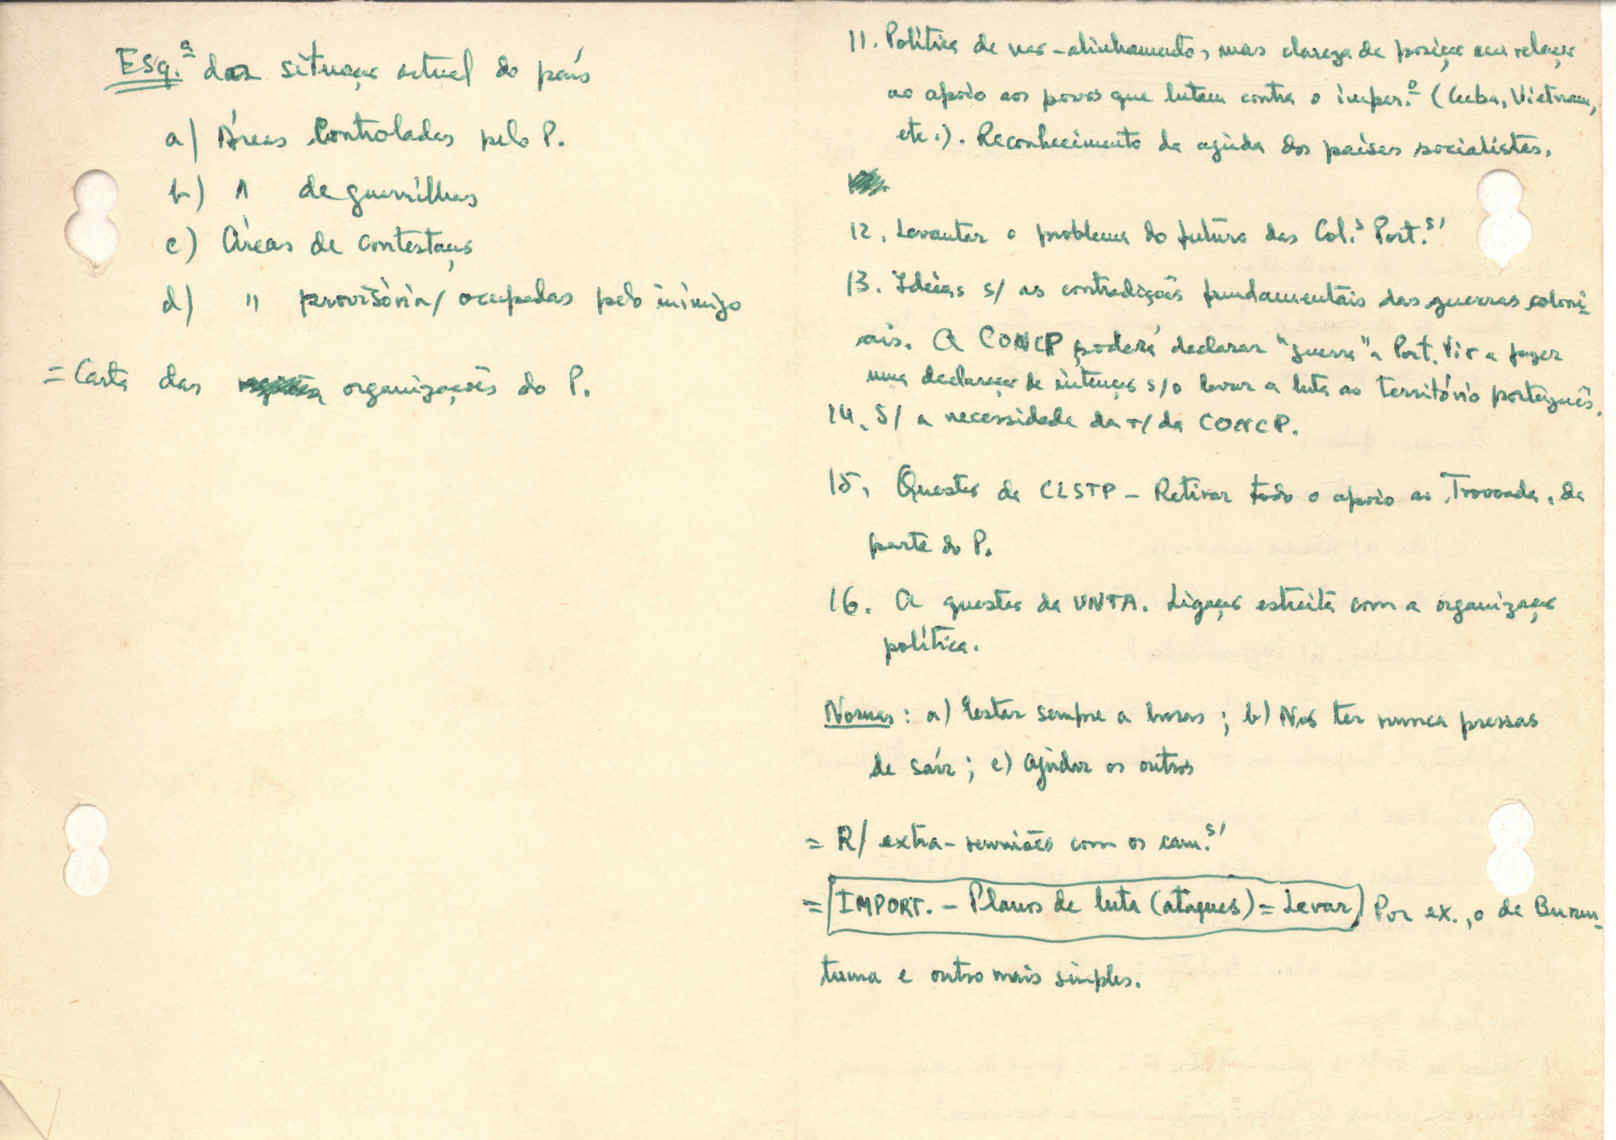 Esq.ª da situação actual do país
a) Áreas Controladas pelo P.
b) " de guerrilhas
c) Áreas de contestação
d) " provisória/ ocupadas pelo inimigo
= Carta das organizações do P.
11. Política de não-alinhamento, mas clareza de posição em relação
ao apoio aos povos que lutam contra o imper.º (Cuba, Vietnam,
etc.). Reconhecimento da ajuda dos países socialistas.
12. Levantar o problema do futuro das Col.s Port.s/
13. Ideias s/ as contradições fundamentais das guerras coloni-
ais. A CONCP poderá declarar "guerra" a Port. Vir a fazer
uma declaração de intenção s/o levar a luta ao território português.
14. S/ a necessidade da r/ da CONCP.
15. Questão da CLSTP - Retirar todo o apoio ao Trovoada, da
parte do P.
16. A questão da UNTA. Ligação estreita com a organização
política.
Normas: a) Estar sempre a horas; b) Não ter nunca pressas
de sair; c) Ajudar os outros
= R/ extra-reuniões com os cam.s/
= IMPORT. - Planos de luta (ataques) = Levar Por ex., o de Burun-
tuma e outro mais simples.